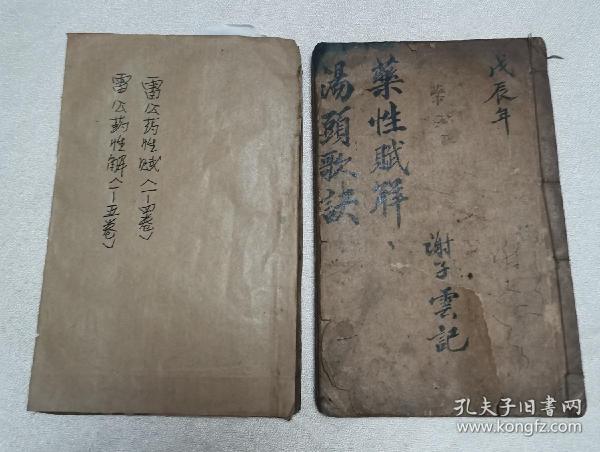 雷公药性赋（一-四卷）
雷公药性解（一-五卷）
戊辰年
藥性賦解、
湯頭歌訣
謝子雲記
孔夫子旧书网
www.kongfz.com